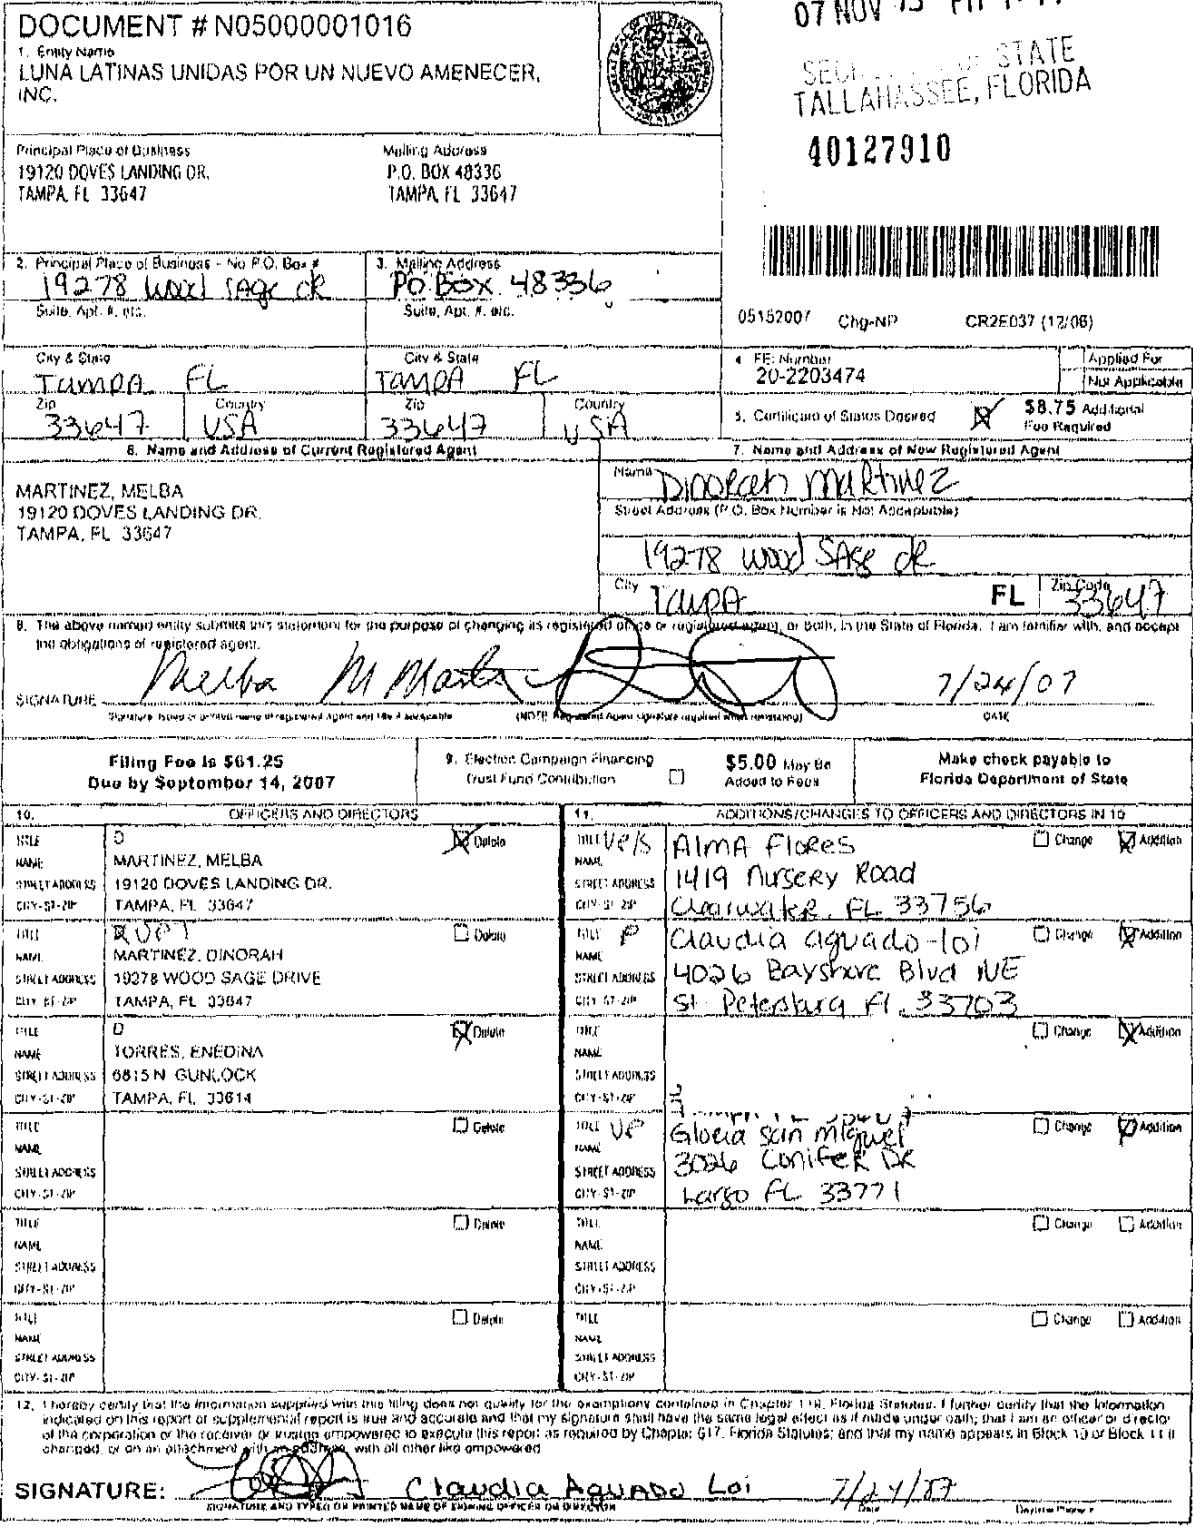 DOCUMENT # N05000001016
1. Entity Name
LUNA LATINAS UNIDAS POR UN NUEVO AMENECER,
INC.
07 NOV
STATE
TALLAHASSEE, FLORIDA
40127910
Principal Place of Business
19120 DOVES LANDING DR.
TAMPA, FL 33647
Mailing Address
P.O. BOX 48336
TAMPA, FL 33647
2. Principal Place of Business - No P.O. Box #
19278 Wood SAge dR
Suite, Apt. #, etc.
3. Mailing Address
PO Box 48336
Suite, Apt. #, etc.
05152007 Chg-NP CR2E037 (12/06)
City & State
TAMPA FL
City & State
TAMPA FL
4. FEI Number
20-2203474
Applied For
Not Applicable
Zip
33647
Country
USA
Zip
33647
Country
USA
5. Certificate of Status Desired
$8.75 Additional
Fee Required
6. Name and Address of Current Registered Agent
MARTINEZ, MELBA
19120 DOVES LANDING DR.
TAMPA, FL 33647
7. Name and Address of New Registered Agent
Name
Dinorah Martinez
Street Address (P.O. Box Number is Not Acceptable)
19278 Wood SAge dR
City
TAMPA
FL
Zip Code
33647
8. The above named entity submits this statement for the purpose of changing its registered office or registered agent, or both, in the State of Florida. I am familiar with, and accept
the obligations of registered agent.
SIGNATURE
Melba M Martinez
7/24/07
Signature, typed or printed name of registered agent and title if applicable
(NOTE: Registered Agent signature required when reinstating)
DATE
Filing Fee is $61.25
Due by September 14, 2007
9. Election Campaign Financing
Trust Fund Contribution
$5.00 May Be
Added to Fees
Make check payable to
Florida Department of State
10. OFFICERS AND DIRECTORS
TITLE D Delete
NAME MARTINEZ, MELBA
STREET ADDRESS 19120 DOVES LANDING DR.
CITY-ST-ZIP TAMPA, FL 33647
TITLE VPT Delete
NAME MARTINEZ, DINORAH
STREET ADDRESS 19278 WOOD SAGE DRIVE
CITY-ST-ZIP TAMPA, FL 33647
TITLE D Delete
NAME TORRES, ENEDINA
STREET ADDRESS 6815 N GUNLOCK
CITY-ST-ZIP TAMPA, FL 33614
TITLE Delete
NAME
STREET ADDRESS
CITY-ST-ZIP
TITLE Delete
NAME
STREET ADDRESS
CITY-ST-ZIP
TITLE Delete
NAME
STREET ADDRESS
CITY-ST-ZIP
11. ADDITIONS/CHANGES TO OFFICERS AND DIRECTORS IN 10
TITLE VP/S Change Addition
NAME Alma Flores
STREET ADDRESS 1419 Nursery Road
CITY-ST-ZIP Clearwater, FL 33756
TITLE P Change Addition
NAME Claudia aguado-loi
STREET ADDRESS 4026 Bayshore Blvd NE
CITY-ST-ZIP St. Petersburg Fl. 33703
TITLE Change Addition
NAME
STREET ADDRESS
CITY-ST-ZIP
TITLE VP Change Addition
NAME Gloria San Miguel
STREET ADDRESS 3026 Conifer DR
CITY-ST-ZIP Largo FL 33771
TITLE Change Addition
NAME
STREET ADDRESS
CITY-ST-ZIP
TITLE Change Addition
NAME
STREET ADDRESS
CITY-ST-ZIP
12. I hereby certify that the information supplied with this filing does not qualify for the exemptions contained in Chapter 119, Florida Statutes. I further certify that the information
indicated on this report or supplemental report is true and accurate and that my signature shall have the same legal effect as if made under oath; that I am an officer or director
of the corporation or the receiver or trustee empowered to execute this report as required by Chapter 617, Florida Statutes; and that my name appears in Block 10 or Block 11 if
changed, or on an attachment with an address, with all other like empowered.
SIGNATURE: Claudia Aguado Loi 7/24/07
SIGNATURE AND TYPED OR PRINTED NAME OF SIGNING OFFICER OR DIRECTOR
Date
Daytime Phone #